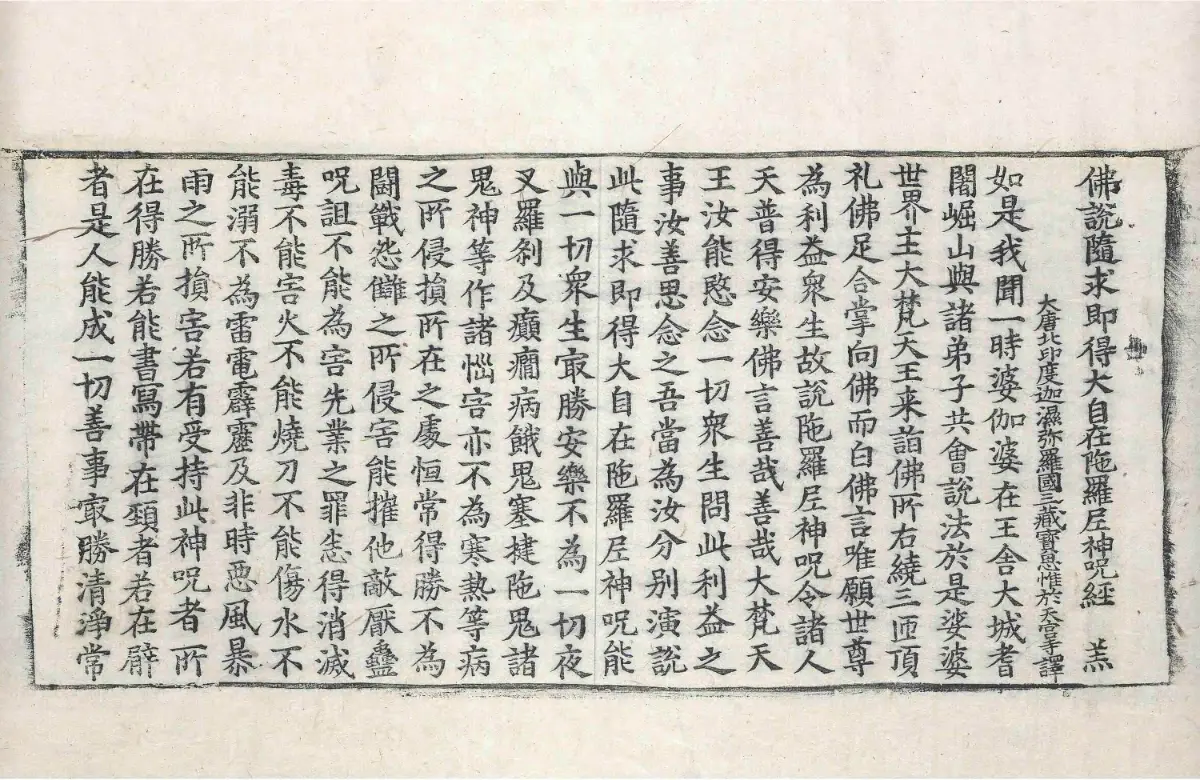 佛說隨求即得大自在陁羅尼神呪經 羔
大唐北印度迦濕弥羅國三藏寳思惟於天宫寺譯
如是我聞一時婆伽婆在王舎大城耆
闍崛山與諸弟子共會說法於是娑婆
世界主大梵天王来詣佛所右繞三匝頂
礼佛足合掌向佛而白佛言唯願世尊
為利益衆生故說陁羅尼神呪令諸人
天普得安樂佛言善哉善哉大梵天
王汝能愍念一切衆生問此利益之
事汝善思念之吾當為汝分别演說
此隨求即得大自在陁羅尼神呪能
與一切衆生㝡勝安樂不為一切夜
叉羅刹及癲癇病餓鬼塞揵陁鬼諸
鬼神等作諸惱害亦不為寒熱等病
之所侵損所在之處恒常得勝不為
鬪戰怨讎之所侵害能摧他敵厭蠱
呪詛不能為害先業之罪悉得消滅
毒不能害火不能燒刀不能傷水不
能溺不為雷電霹靂及非時惡風暴
雨之所損害若有受持此神呪者所
在得勝若能書寫帶在頸者若在臂
者是人能成一切善事㝡勝清淨常